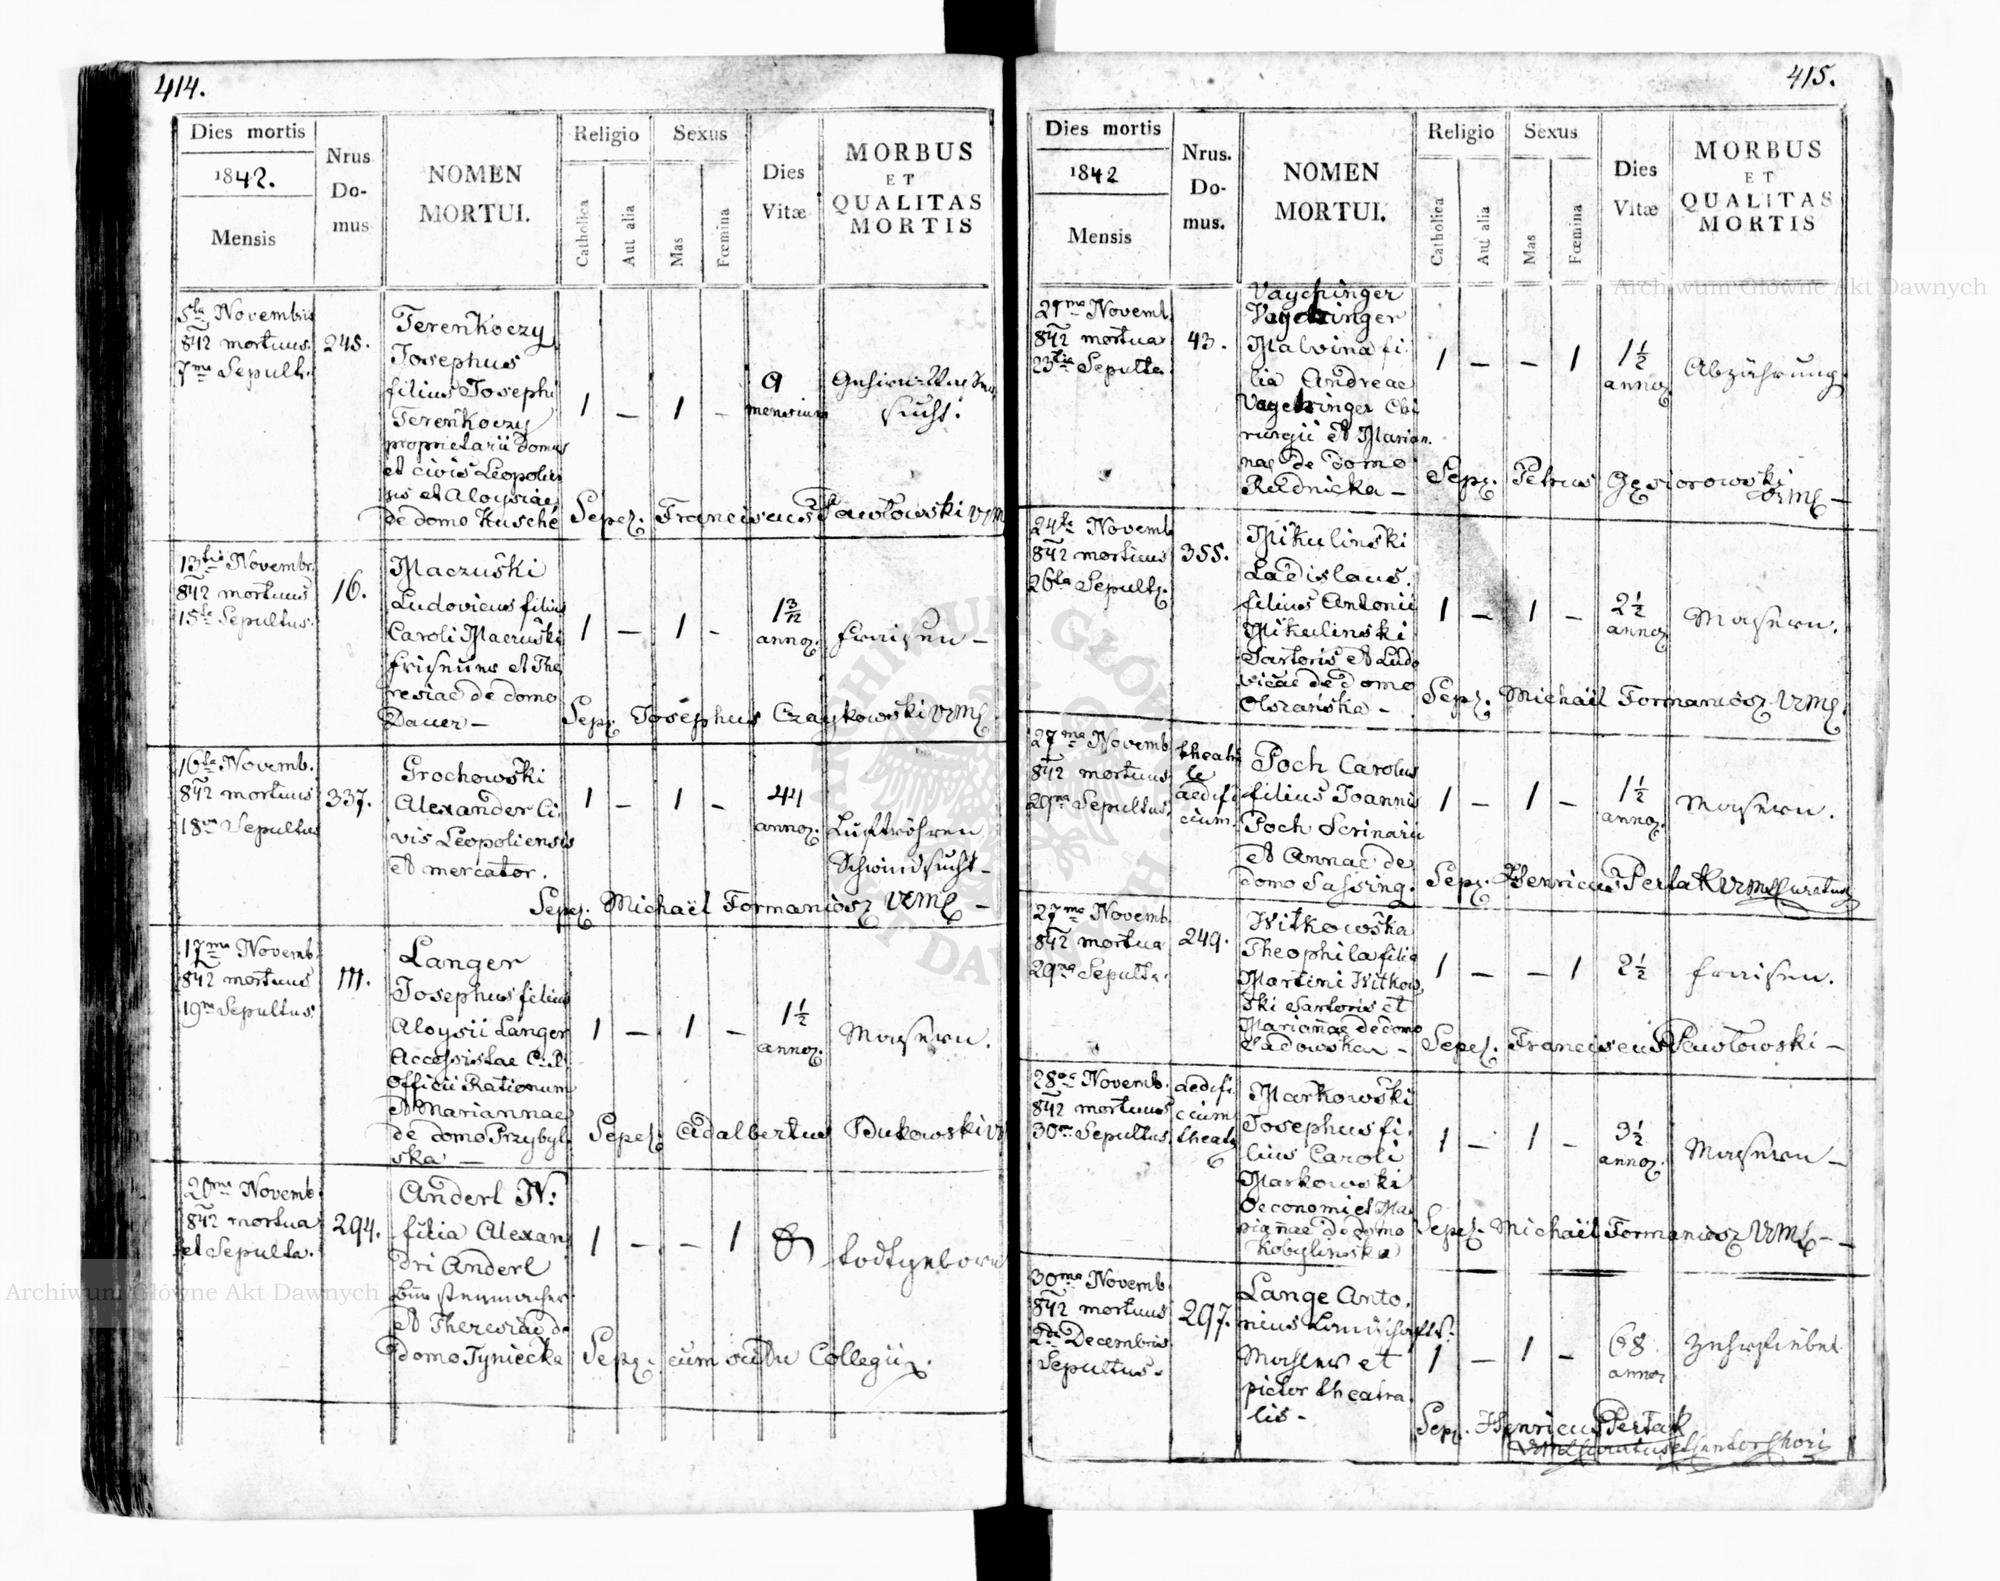 414.
Dies mortis
1842.
Mensis
Nrus
Do-
mus
NOMEN
MORTUI.
Religio
Catholica
Aut alia
Sexus
Mas
Fœmina
Dies
Vitæ
MORBUS
ET
QUALITAS
MORTIS
5ta Novembris
842 mortuus
7ma Sepult.
245.
Terenkoczy
Josephus
filius Josephi
Terenkoczy
proprietarii domus
et civis Leopolien
sis et Aloysiae
de domo Kusché
1 — 1 —
9
mensium
Gehirn-Wasser
sucht.
Sepel. Franciscus Pawłowski VRM
13tia Novembr.
842 mortuus
15ta Sepultus.
16.
Maczuski
Ludovicus filius
Caroli Maczuski
friseurs et The
resiae de domo
Bauer —
1 — 1 —
1 3/12
annor.
Fraisen —
Sepel. Josephus Czaykowski VRML
16ta Novemb.
842 mortuus
18va Sepultus
337.
Grochowski
Alexander Ci-
vis Leopoliensis
et mercator.
1 — 1 —
44
annor.
Luftröhren
Schwindsucht —
Sepel. Michaël Formaniosz VRML —
17ma Novemb.
842 mortuus
19na Sepultus.
111.
Langer
Josephus filius
Aloysii Langer
Accessistae C. R.
Officii Rationum
et Mariannae
de domo Przybyl
ska —
1 — 1 —
1 1/2
annor.
Masern.
Sepel. Adalbertus Bukowski V
20ma Novemb.
842 mortua
et Sepulta.
294.
Anderl N:
filia Alexan
dri Anderl
et Theresiae de
domo Tyniecka
1 — — 1
todtgeboren
Sepel. cum scitu Collegii.
415.
Dies mortis
1842
Mensis
Nrus.
Do-
mus.
NOMEN
MORTUI.
Religio
Catholica
Aut alia
Sexus
Mas
Fœmina
Dies
Vitæ
MORBUS
ET
QUALITAS
MORTIS
21ma Novemb.
842 mortua
23tia Sepulta
43.
Vaychinger
Malvina fi-
lia Andreae
Chi
rurgii et Marian
nae de domo
Rudnicka —
1 — — 1
1 1/2
annor.
Abzährung
Sepel. Petrus Gęsiorowski
VRML —
24ta Novemb
842 mortuus
26ta Sepult.
355.
Mikulinski
Ladislaus.
filius Antonii
Mikulinski
Sartoris et Ludo
vicae de domo
Olszańska —
1 — 1 —
2 1/2
annor
Masern.
Sepel. Michaël Formaniosz VRML.
27ma Novemb
842 mortuus
29na Sepultus.
theatra
le
aedifi
cium.
Poch Carolus
filius Joannis
Poch Scrinarii
et Annae de
domo Sassing.
1 — 1 —
1 1/2
annor.
Masern.
Sepel. Henricus Pertak VRML Curatus
27ma Novemb.
842 mortua
29na Sepulta.
249.
Witkowska
Theophila filia
Martini Witkow
ski Sartoris et
Mariannae de domo
Sadowska —
1 — — 1
2 1/2
Fraisen.
Sepel. Franciscus Pawłowski —
28va Novemb.
842 mortuus
30ma Sepultus
aedifi
cium
theatr
Markowski
Josephus fi-
lius Caroli
Markowski
Oeconomi et Ma
riannae de domo
Kobylinska
1 — 1 —
3 1/2
annor.
Masern —
Sepel. Michaël Formaniosz VRML —
30ma Novemb
842 mortuus
2da Decembris
Sepultus.
297.
Lange Anto.
nius Landschafts-
Mahler et
pictor theatra
lis —
1 — 1 —
68
annor
Zehrfieber
Sepel. Henricus Pertak
VRML Curatus et Cantor Chori
Archiwum Główne Akt Dawnych
Archiwum Główne Akt Dawnych
ARCHIWUM GŁÓWNE AKT DAWNYCH